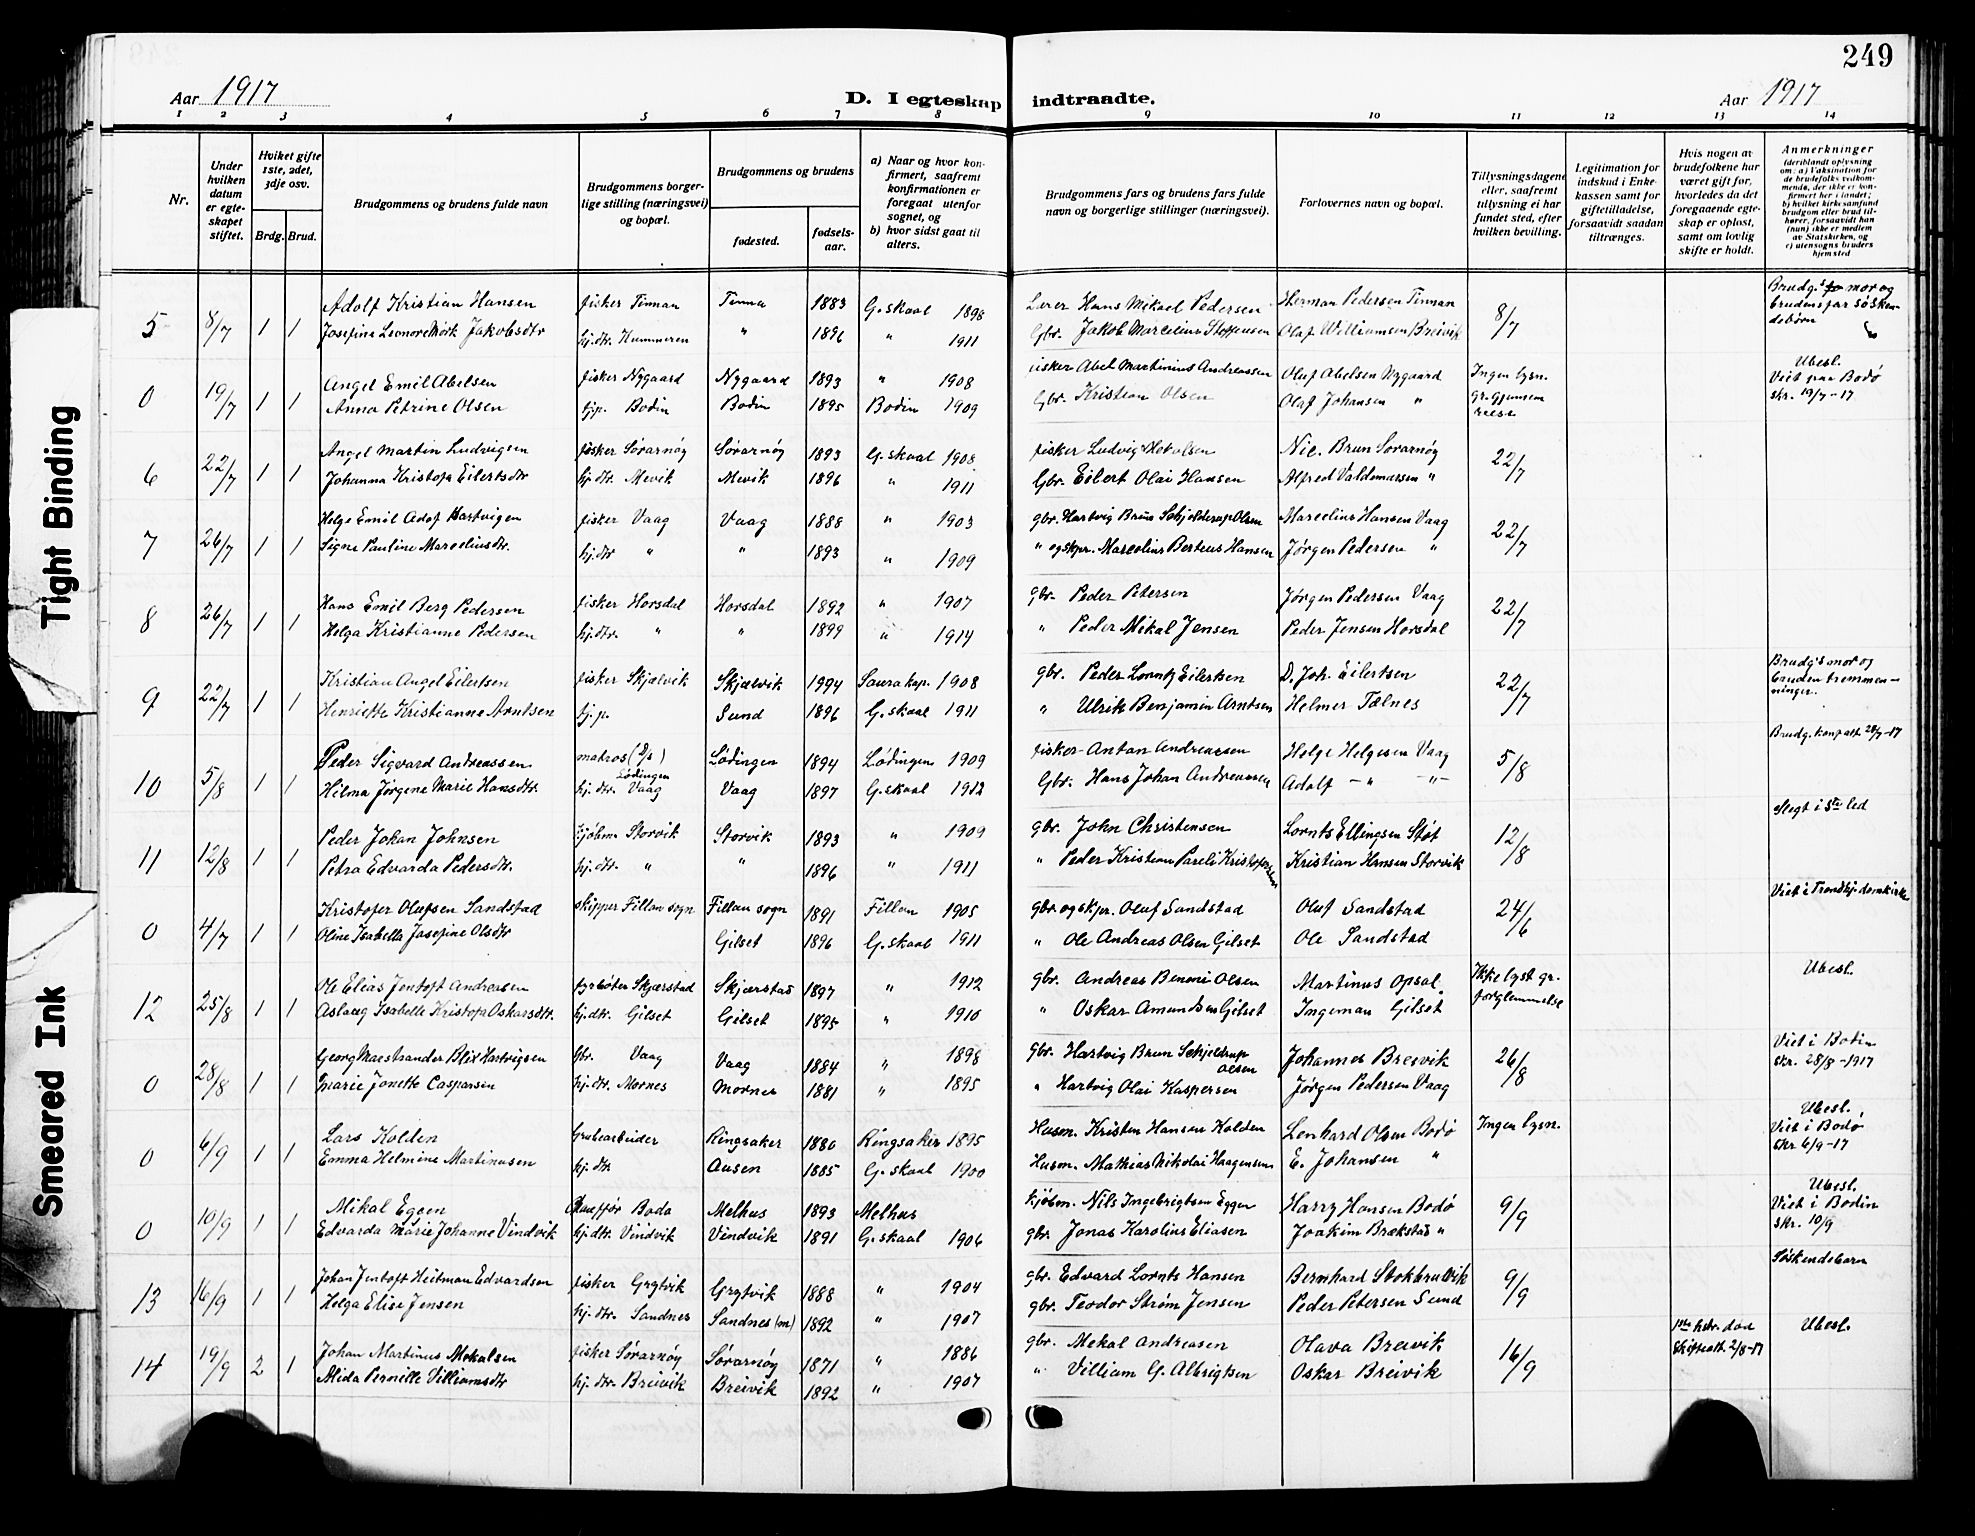 249
Aar 1917
D. I egteskap indtraadte.
Aar 1917
1 2 3 4 5 6 7 8 9 10 11 12 13 14
Nr.
Under hvilken datum er egteskapet stiftet.
Hviket gifte 1ste, 2det, 3dje osv.
Brdg. Brud.
Brudgommens og brudens fulde navn
Brudgommens borgerlige stilling (næringsvei) og bopæl.
Brudgommens og brudens
fødested.
fødselsaar.
a) Naar og hvor konfirmert, saafremt konfirmationen er foregaat utenfor sognet, og
b) hvor sidst gaat til alters.
Brudgommens fars og brudens fars fulde navn og borgerlige stillinger (næringsvei).
Forlovernes navn og bopæl.
Tillysningsdagene eller, saafremt tillysning ei har fundet sted, efter hvilken bevilling.
Legitimation for indskud i Enkekassen samt for giftetilladelse, forsaavidt saadan tiltrænges.
Hvis nogen av brudefolkene har været gift før, hvorledes da det foregaaende egteskap er opløst, samt om lovlig skifte er holdt.
Anmerkninger (deriblandt oplysning om: a) Vaksination for de brudefolks vedkommende, der ikke er konfirmert her i landet; b) hvilket kirkesamfund brudgom eller brud tilhører, forsaavidt han (hun) ikke er medlem av Statskirken, og c) utensogns bruders hjemsted
5 8/7 1 1 Adolf Kristian Hansen fisker Finnan Finna 1883 G.skaal 1898 Lærer Hans Mikael Pedersen Herman Pedersen Finnan 8/7 Brudg.s mor og brudens far søskendebørn
Josefine Leonore Mørk Jakobsdtr hj.dtr. Hummeren " 1896 " 1911 Gbr. Jakob Marcelius Steffensen Olaf Williamsen Breivik
0 19/7 1 1 Angel Emil Abelsen fisker Nygaard Nygaard 1893 " 1908 fisker Abel Martinius Andreassen Oluf Abelsen Nygaard Ingen lysn. Ubesl. Viet paa Bodø skr. 19/7-17
Anna Petrine Olsen Bodin Bodin 1895 Bodin 1909 Gbr. Kristian Olsen Olaf Johansen "
6 22/7 1 1 Angel Martin Ludvigsen fisker Sørarnøy Sørarnøy 1893 G.skaal 1908 fisker Ludvig Mekalsen Nic. Brun Sørarnøy 22/7
Johanna Kristofa Eilertsdtr hj.dtr. Mevik Mevik 1896 " 1911 Gbr. Eilert Olai Hansen Alfred Valdemarsen "
7 26/7 1 1 Helge Emil Adof Hartvigen fisker Vaag Vaag 1888 " 1903 gbr. Hartvig Brun Schjelderup Olsen Marcelius Hansen Vaag 22/7
Signe Pauline Marceliusdtr. hj.dtr " " 1893 " 1909 " og skpr. Marcelius Berteus Hansen Jørgen Pedersen "
8 26/7 1 1 Hans Emil Berg Pedersen fisker Horsdal Horsdal 1892 " 1907 gbr. Peder Petersen Jørgen Pedersen Vaag 22/7
Helga Kristianne Pedersen hj.dtr. " " 1899 " 1914 " Peder Mikal Jensen Peder Jensen Horsdal
9 22/7 1 1 Kristian Angel Eilertsen fisker Skjælvik Skjælvik 1994 Saura kap. 1908 gbr. Peder Lorentz Eilertsen D. Joh. Eilertsen 22/7 Brudg's mor og bruden tremmenninger.
Henriette Kristianne Arntsen Sund 1896 G.skaal 1911 " Ulrik Benjamin Arntsen Helmer Tælnes
10 5/8 1 1 Peder Sigvard Andreassen matros Lødingen Lødingen 1894 Lødingen 1909 fisker Anton Andreassen Helge Helgesen Vaag 5/8
Hilma Jørgene Marie Hansdtr. hj.dtr. Vaag Vaag 1897 G.skaal 1912 Gbr. Hans Johan Andreassen Adolf " "
11 12/8 1 1 Peder Johan Johnsen kjøbm. Storvik Storvik 1893 " 1909 gbr. John Christensen Lornts Ellingsen Støt 12/8 Slegt i 5te led
Petra Edvarda Pedersdtr. hj.dtr. " " 1896 " 1911 " Peder Kristian Pareli Kristofersen Kristian Hansen Storvik
0 4/7 1 1 Kristofer Olufsen Sandstad skipper Fillan sogn Fillan sogn 1891 Fillan 1905 gbr og skpr. Oluf Sandstad Oluf Sandstad 24/6 Viet i Trondhj. domkirke
Oline Isabella Josefine Olsdtr Gilset 1896 G.skaal 1911 " Ole Andreas Olsen Gilset Ole Sandstad
12 25/8 1 1 Ole Elias Jentoft Andersen fyrbøter Skjærstad Skjærstad 1897 " 1912 gbr. Andreas Benoni Olsen Martinus Opsal Ikke lyst gr. forglemmelse Ubesl.
Aslaug Isabelle Kristofa Oskarsdtr. hj.dtr. Gilset Gilset 1895 " 1910 " Oskar Amundsen Gilset Ingeman Gilset
0 28/8 1 1 Georg Maestrander Blix Hartvigsen Gbr. Vaag Vaag 1884 " 1898 gbr. Hartvig Brun Schjeldrup Olsen Johannes Breivik 26/8 Viet i Bodin skr. 28/8-1917
Marie Jonette Caspersen hj.dtr. Mornes Mornes 1881 " 1895 " Hartvig Olai Kaspersen Jørgen Pedersen Vaag
0 6/9 1 1 Lars Kolden Grubearbeider Ringsaker 1880 Ringsaker 1895 Husm. Kristen Hansen Kolden Lenhard Olsen Bodø Ingen lysn. Ubesl. Viet i Bodø, skr 6/9-17
Emma Helmine Martinusen hj.dtr Ausen 1885 G.skaal 1900 Husm. Mathias Nikolai Haagensen E. Johansen "
0 10/9 1 1 Mikal Egeen Chauffør Bodø Melhus 1893 Melhus kjøbm. Nils Ingebrigtsen Eggen Harry Hansen Bodø 9/9 Ubesl. Viet i Bodin skr. 10/9
Edvarda Marie Johanne Vindvik hj.dtr. Vindvik Vindvik 1891 G.skaal 1906 gbr. Jonas Karolius Eliasen Joakim Brækstad "
13 16/9 1 1 Johan Jentoft Heitman Edvardsen fisker Grytvik Grytvik 1888 " 1904 gbr. Edvard Lornts Hansen Bernhard Stokbrudvik 9/9 Søskendebarn
Helga Elise Jensen hj.dtr. Sandnes Sandnes (m) 1892 " 1907 gbr. Teodor Strøm Jensen Peder Petersen Sund
14 19/9 2 1 Johan Martinus Mekalsen fisker Sørarnøy Sørarnøy 1871 " 1886 gbr. Mekal Andreasen Olava Breivik 16/9 1ste hstr. død Skifteatt. 2/8-17 Ubesl.
Alida Pernille Villiamsdtr hj.dtr. Breivik Breivik 1892 " 1907 " Villiam G. Albrigtsen Oskar Breivik
Tight Binding
Smeared Ink